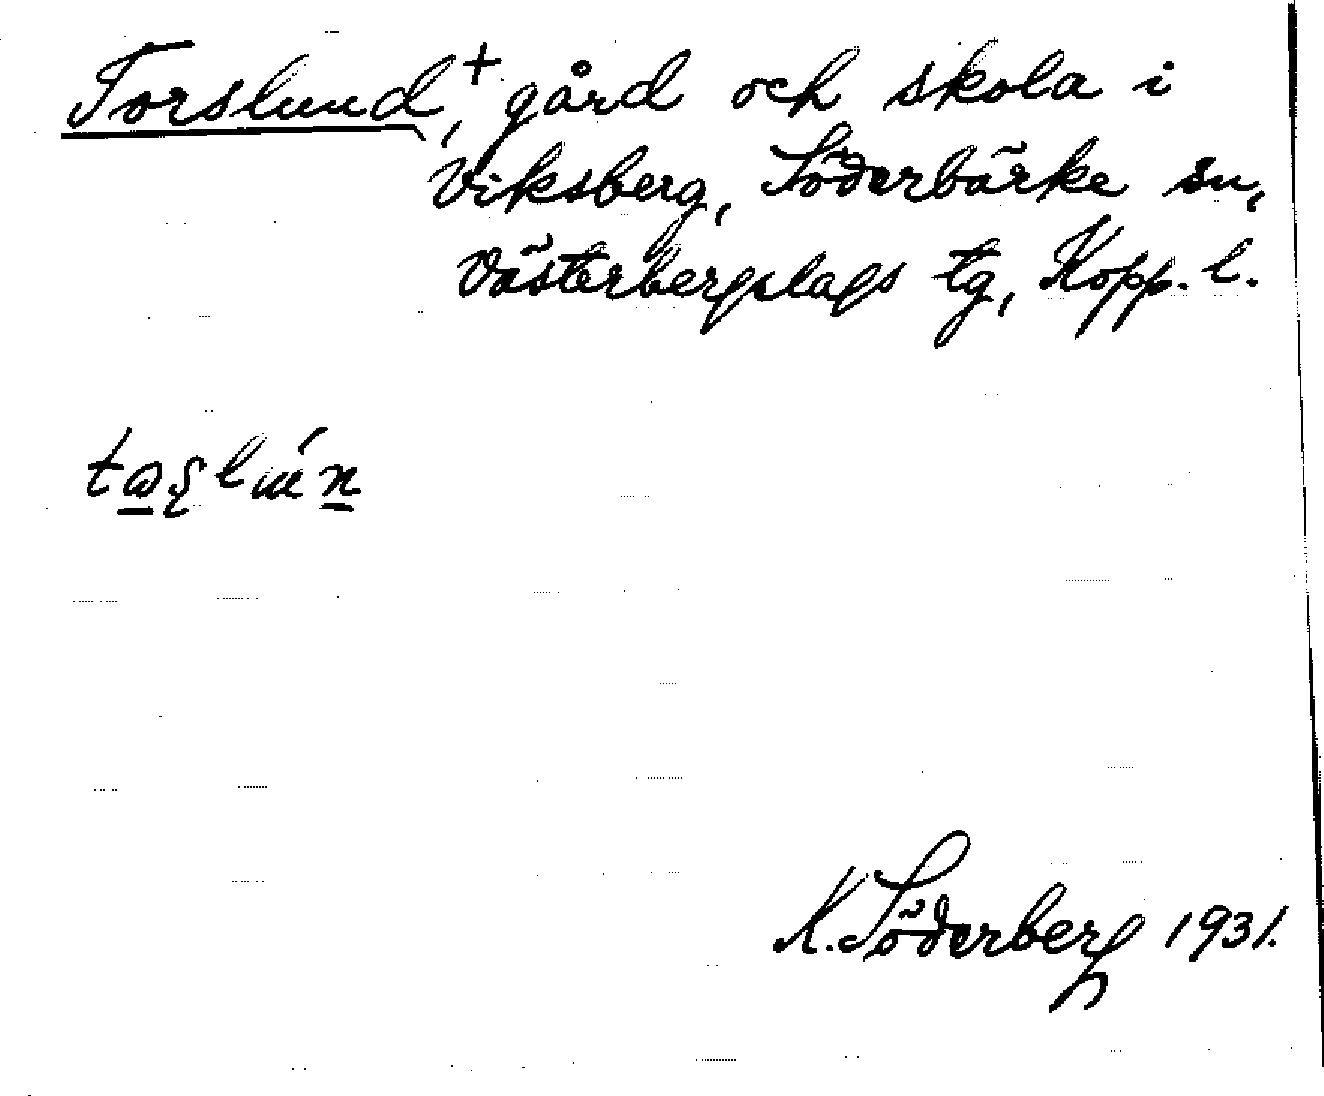 Torslund,⁺ gård och skola i
Viksberg, Söderbärke sn,
Västerbergslags tg, Kopp. l.
K. Söderberg 1931.